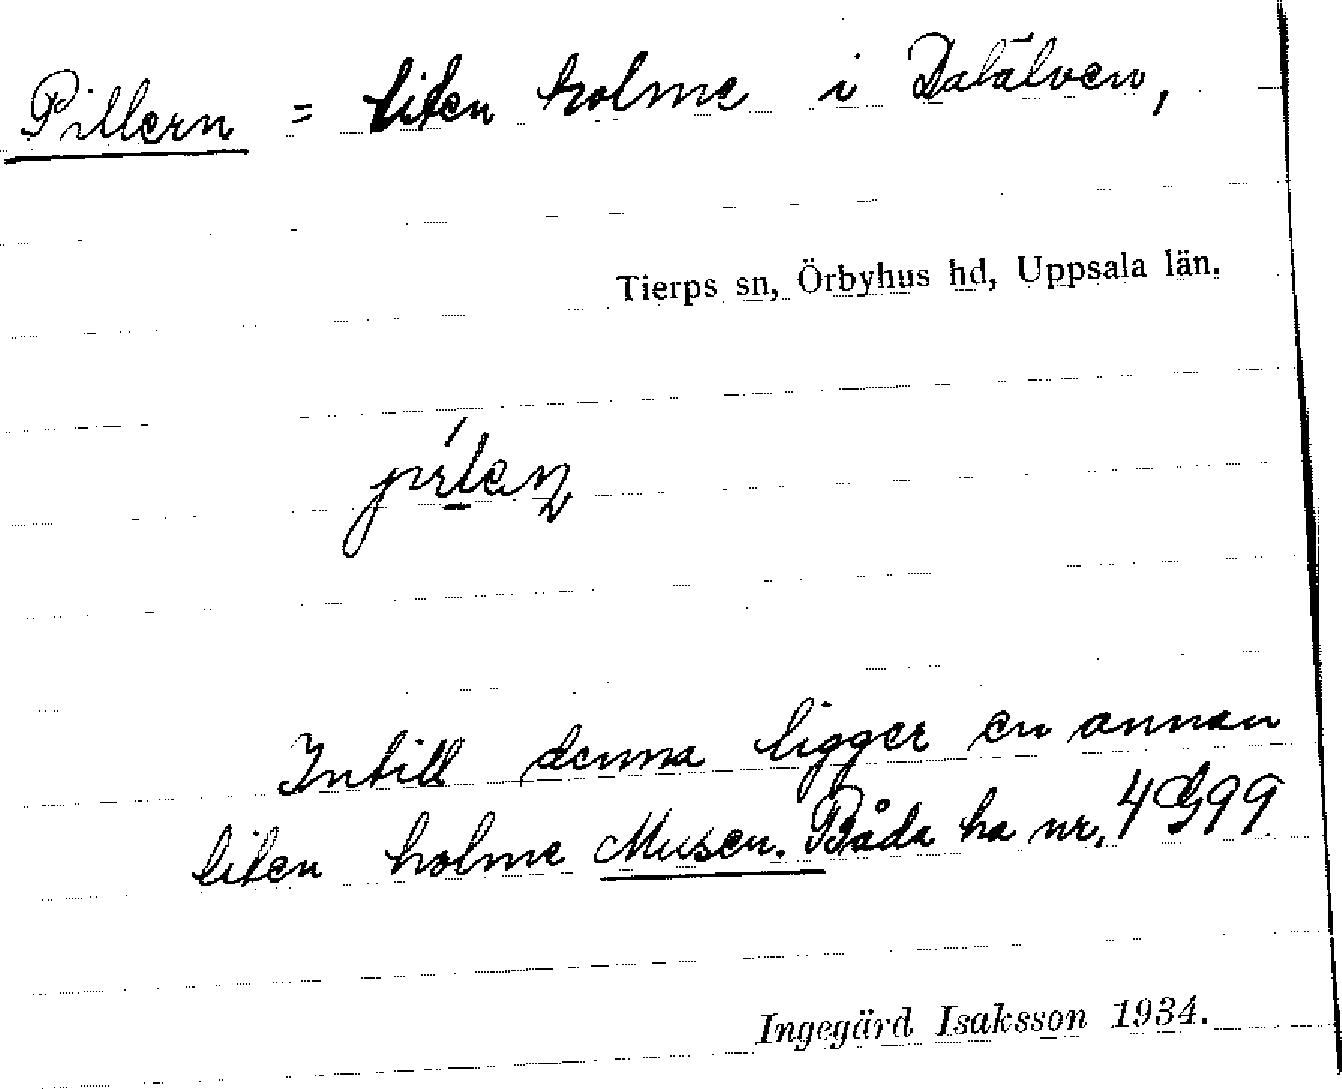 Pillern = liten holme i Dalälven,
Tierps sn, Örbyhus hd, Uppsala län.
Intill denna ligger en annan
liten holme Musen. Båda ha nr. 4G99
Ingegärd Isaksson 1934.